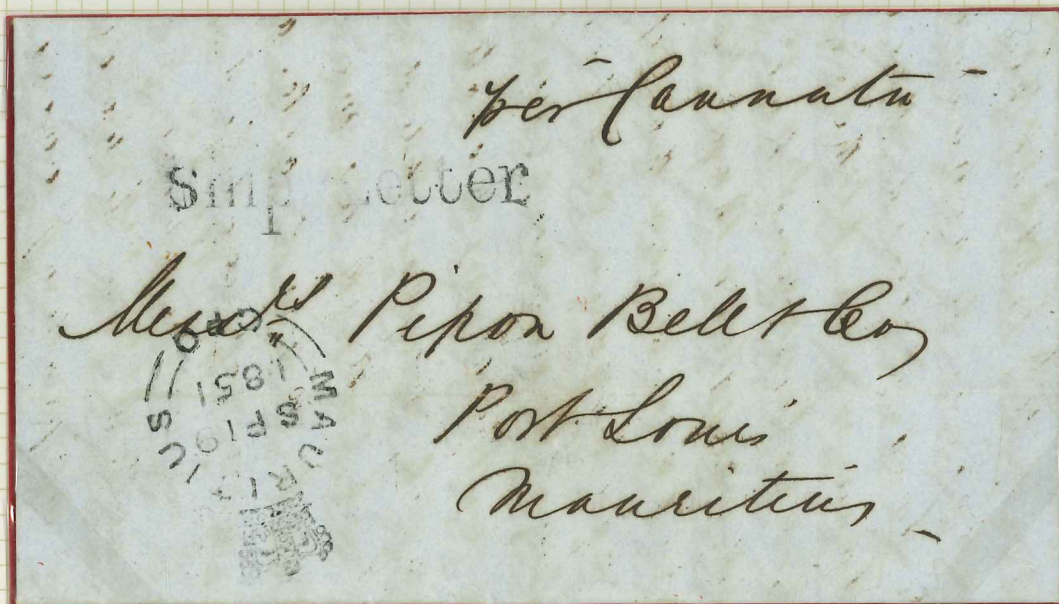 per
Ship Letter
Mess^rs Pipon Bell & Co
Port Louis
Mauritius
MAURITIUS
G.P.O
SP 19
1851